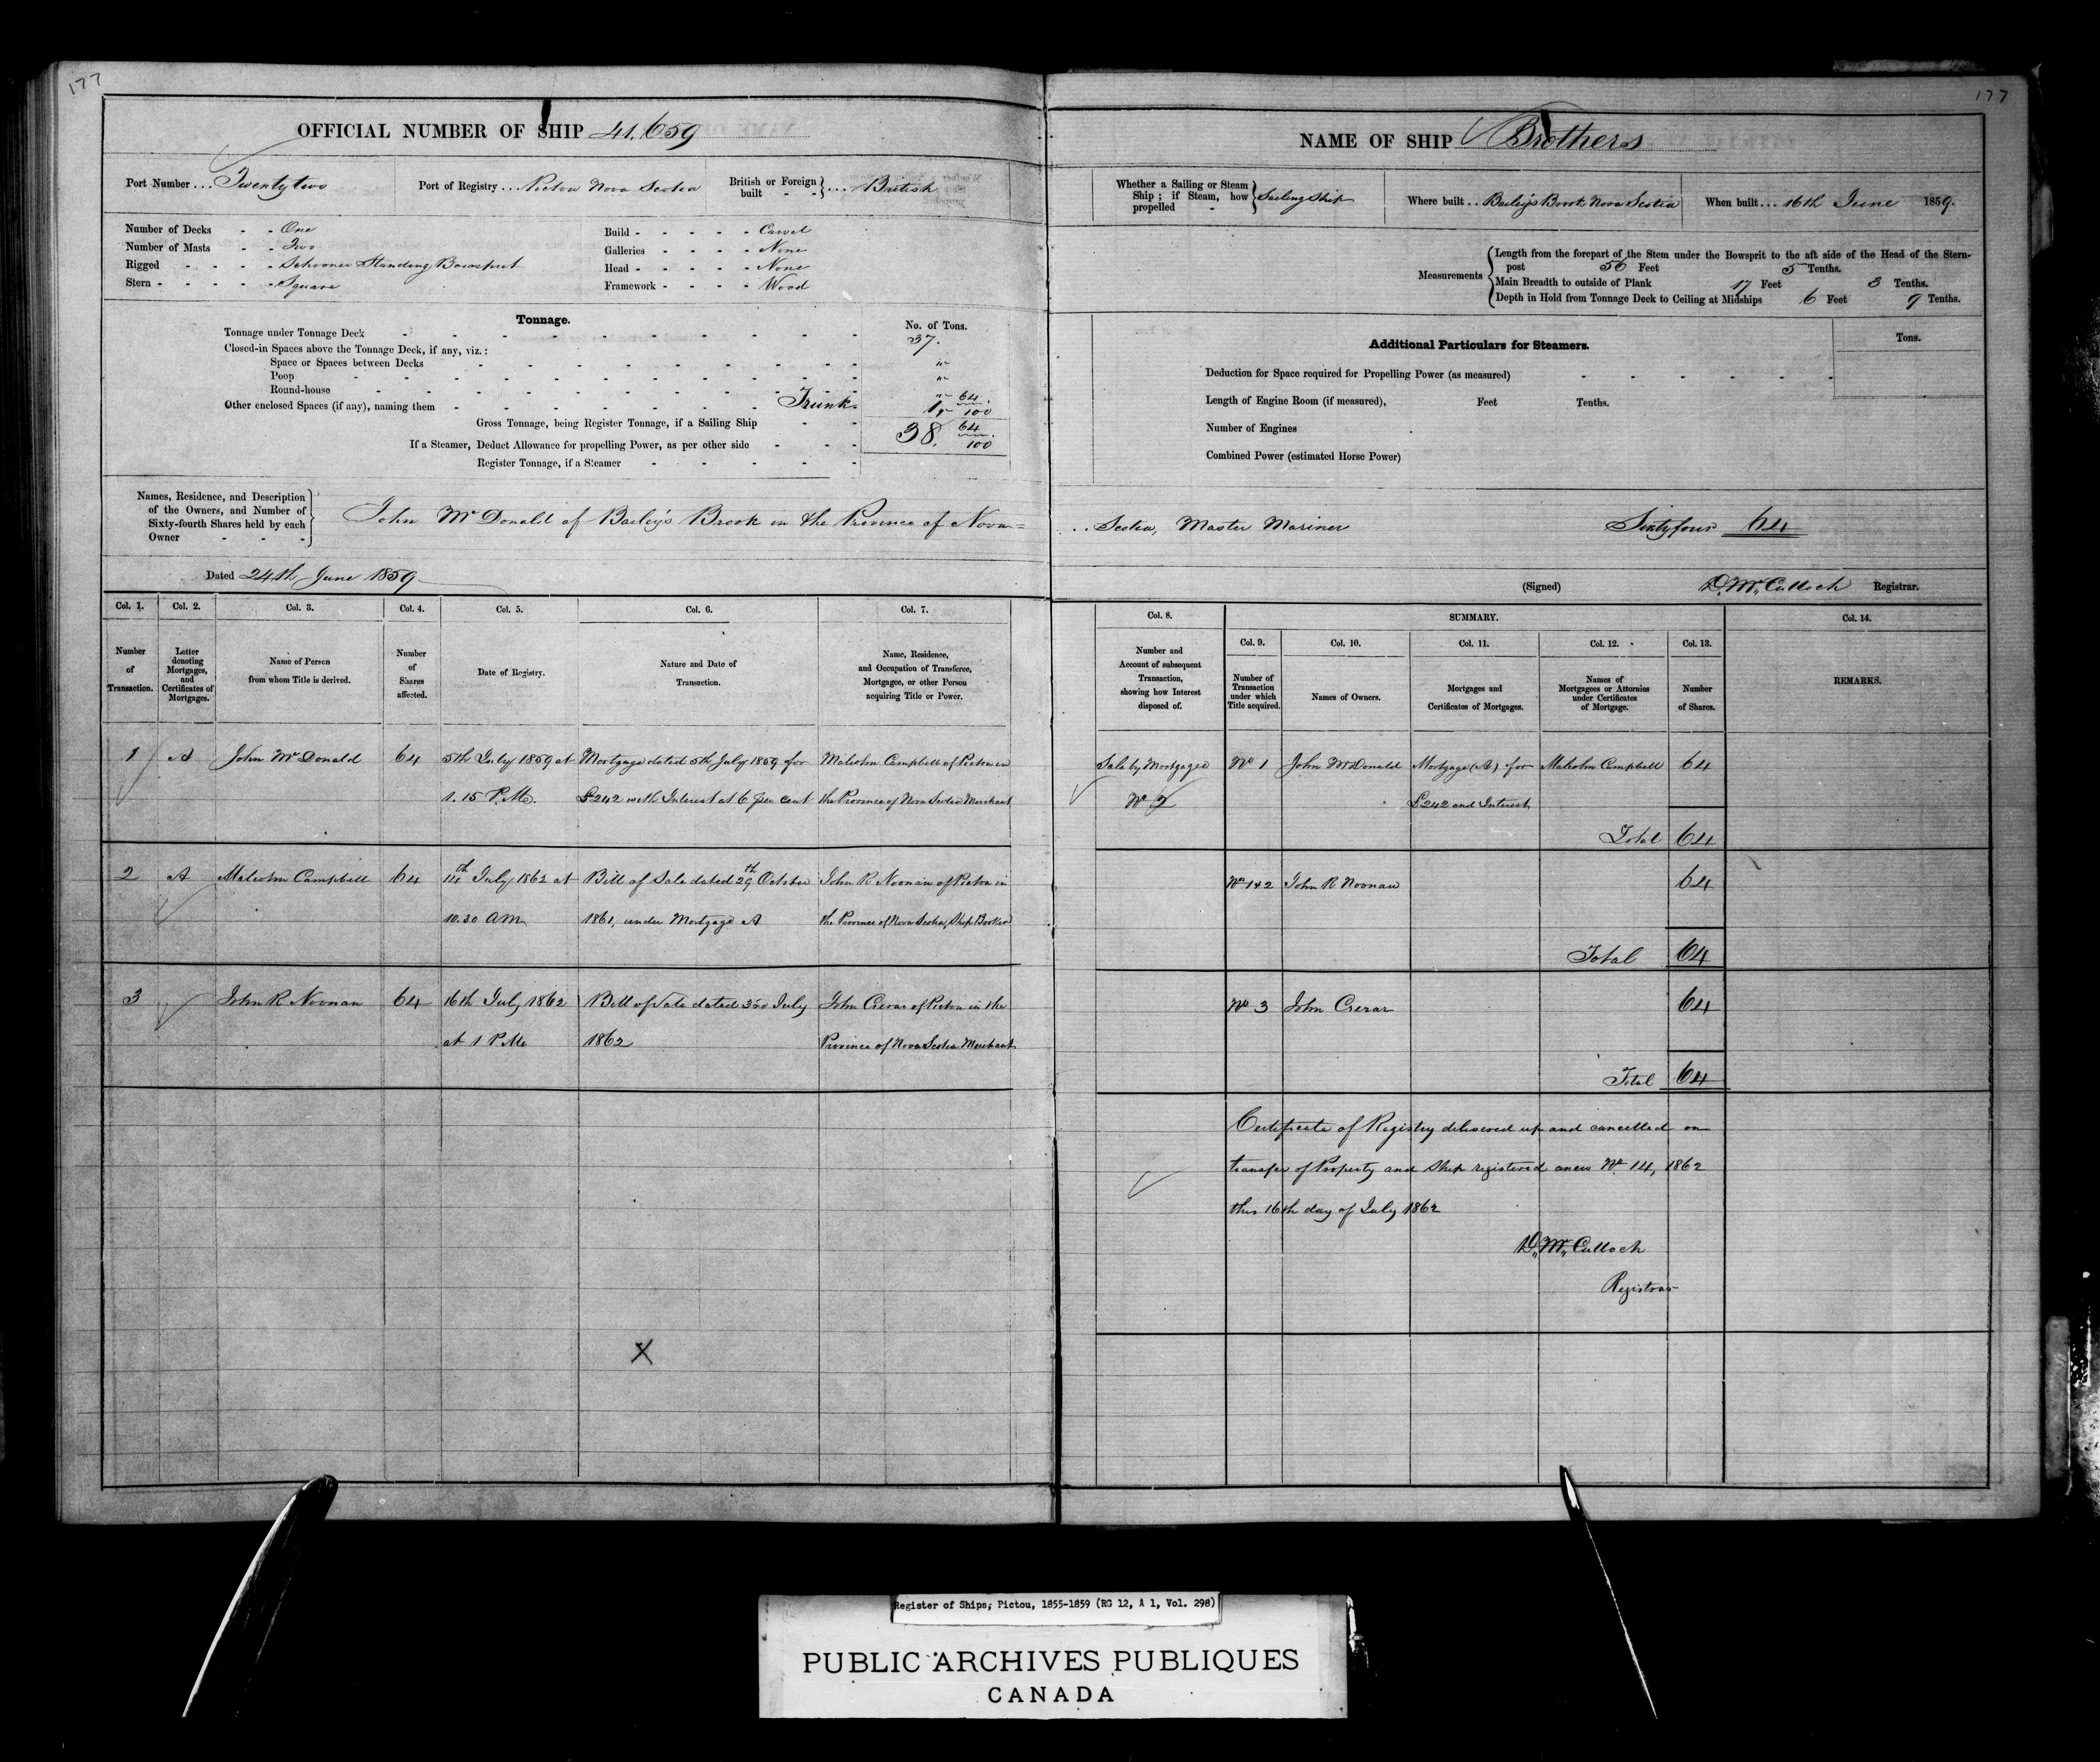 177
OFFICIAL NUMBER OF SHIP 41.659
Port Number ... Twenty two
Port of Registry ... Pictou Nova Scotia
British or Foreign built - - } ... British
Number of Decks - - One
Number of Masts - - Two
Rigged - - - - Schooner Standing Bowsprit
Stern - - - - - Square
Build - - - - - Carvel
Galleries - - - - None
Head - - - - - None
Framework - - - - Wood
Tonnage.
No. of Tons.
Tonnage under Tonnage Deck 37.
Closed-in Spaces above the Tonnage Deck, if any, viz.:
Space or Spaces between Decks "
Poop "
Round-house "
Other enclosed Spaces (if any), naming them Trunk 1. 64/100
Gross Tonnage, being Register Tonnage, if a Sailing Ship 38. 64/100
If a Steamer, Deduct Allowance for propelling Power, as per other side
Register Tonnage, if a Steamer
Names, Residence, and Description
of the Owners, and Number of
Sixty-fourth Shares held by each
Owner - - -
John McDonald of Bailey's Brook in the Province of Nova=
Dated 24th June 1859
Col. 1. Col. 2. Col. 3. Col. 4. Col. 5. Col. 6. Col. 7.
Number of Transaction.
Letter denoting Mortgages, and Certificates of Mortgages.
Name of Person from whom Title is derived.
Number of Shares affected.
Date of Registry.
Nature and Date of Transaction.
Name, Residence, and Occupation of Transferee, Mortgagee, or other Person acquiring Title or Power.
1 A John McDonald 64 5th July 1859 at Mortgage dated 5th July 1859 for Malcolm Campbell of Pictou in
1.15 P.M. £242 with Interest at 6 per cent the Province of Nova Scotia Merchant
2 A Malcolm Campbell 64 14th July 1862 at Bill of Sale dated 29th October John R Noonan of Pictou in
10.30 AM 1861, under Mortgage A the Province of Nova Scotia, Ship Broker
3 John R Noonan 64 16th July 1862 Bill of Sale dated July John Crerar of Pictou in the
at 1 P.M. 1862 Province of Nova Scotia Merchant
X
177
NAME OF SHIP Brothers
Whether a Sailing or Steam Ship; if Steam, how propelled - } Sailing Ship
Where built .. Bailey's Brook Nova Scotia
When built ... 16th June 1859.
Measurements
Length from the forepart of the Stem under the Bowsprit to the aft side of the Head of the Stern-
post 56 Feet 5 Tenths.
Main Breadth to outside of Plank 17 Feet 3 Tenths.
Depth in Hold from Tonnage Deck to Ceiling at Midships 6 Feet 9 Tenths.
Additional Particulars for Steamers.
Tons.
Deduction for Space required for Propelling Power (as measured)
Length of Engine Room (if measured), Feet Tenths.
Number of Engines
Combined Power (estimated Horse Power)
Scotia, Master Mariner Sixty four 64
(Signed) D. McCulloch Registrar.
Col. 8. SUMMARY. Col. 14.
Col. 9. Col. 10. Col. 11. Col. 12. Col. 13.
Number and Account of subsequent Transaction, showing how Interest disposed of.
Number of Transaction under which Title acquired.
Names of Owners.
Mortgages and Certificates of Mortgages.
Names of Mortgagees or Attornies under Certificates of Mortgage.
Number of Shares.
REMARKS.
Sale by Mortgagee No 1 John McDonald Mortgage (A) for Malcolm Campbell 64
No 2 £242 and Interest
Total 64
No 1 & 2 John R Noonan 64
Total 64
No 3 John Crerar 64
Total 64
Certificate of Registry delivered up and cancelled on
transfer of Property and Ship registered anew No. 14, 1862
this 16th day of July 1862
D. McCulloch
Registrar
Register of Ships, Pictou, 1855-1859 (RG 12, A 1, Vol. 298)
PUBLIC ARCHIVES PUBLIQUES
CANADA